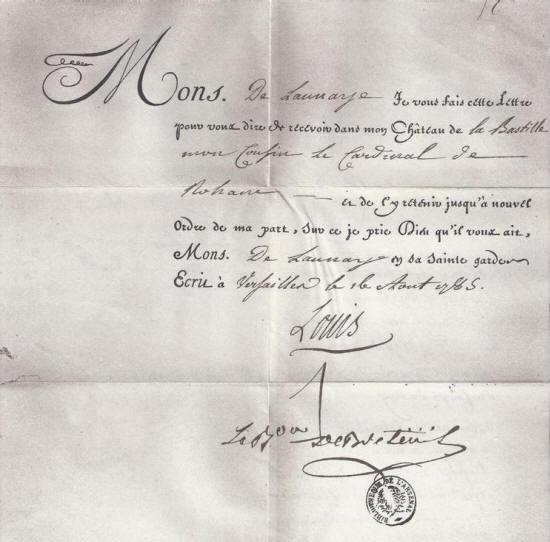 Mons. De Launaye Je vous fais cette Lettre
pour vous dire de recevoir dans mon Château de la Bastille
mon Cousin le Cardinal de
Rohan et de l'y retenir jusqu'à nouvel
Ordre de ma part, Sur ce je prie Dieu qu'il vous ait,
Mons. De Launaye en sa sainte garde.
Ecrit à Versailles le 16 Aout 1785.
Louis
Le Bon de Breteüil
BIBLIOTHEQUE DE L'ARSENAL